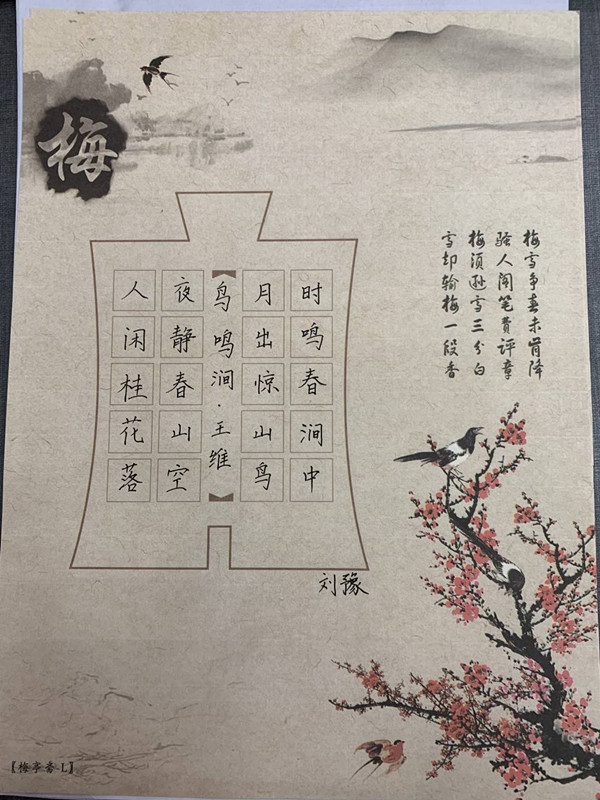 梅
人闲桂花落
夜静春山空
【鸟鸣涧·王维】
月出惊山鸟
时鸣春涧中
刘豫
梅雪争春未肯降
骚人阁笔费评章
梅须逊雪三分白
雪却输梅一段香